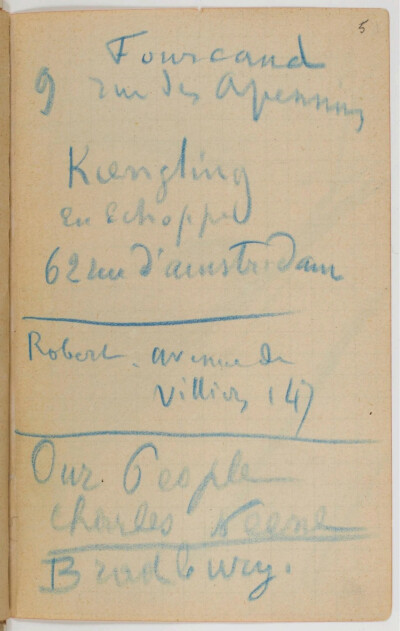 5
Fourcaud
9 rue des Apennins
Kœngling
en Echoppe
62 rue d'amsterdam
Robert. avenue de
Villiers 147
Our People
Charles Keene
Bradbury.